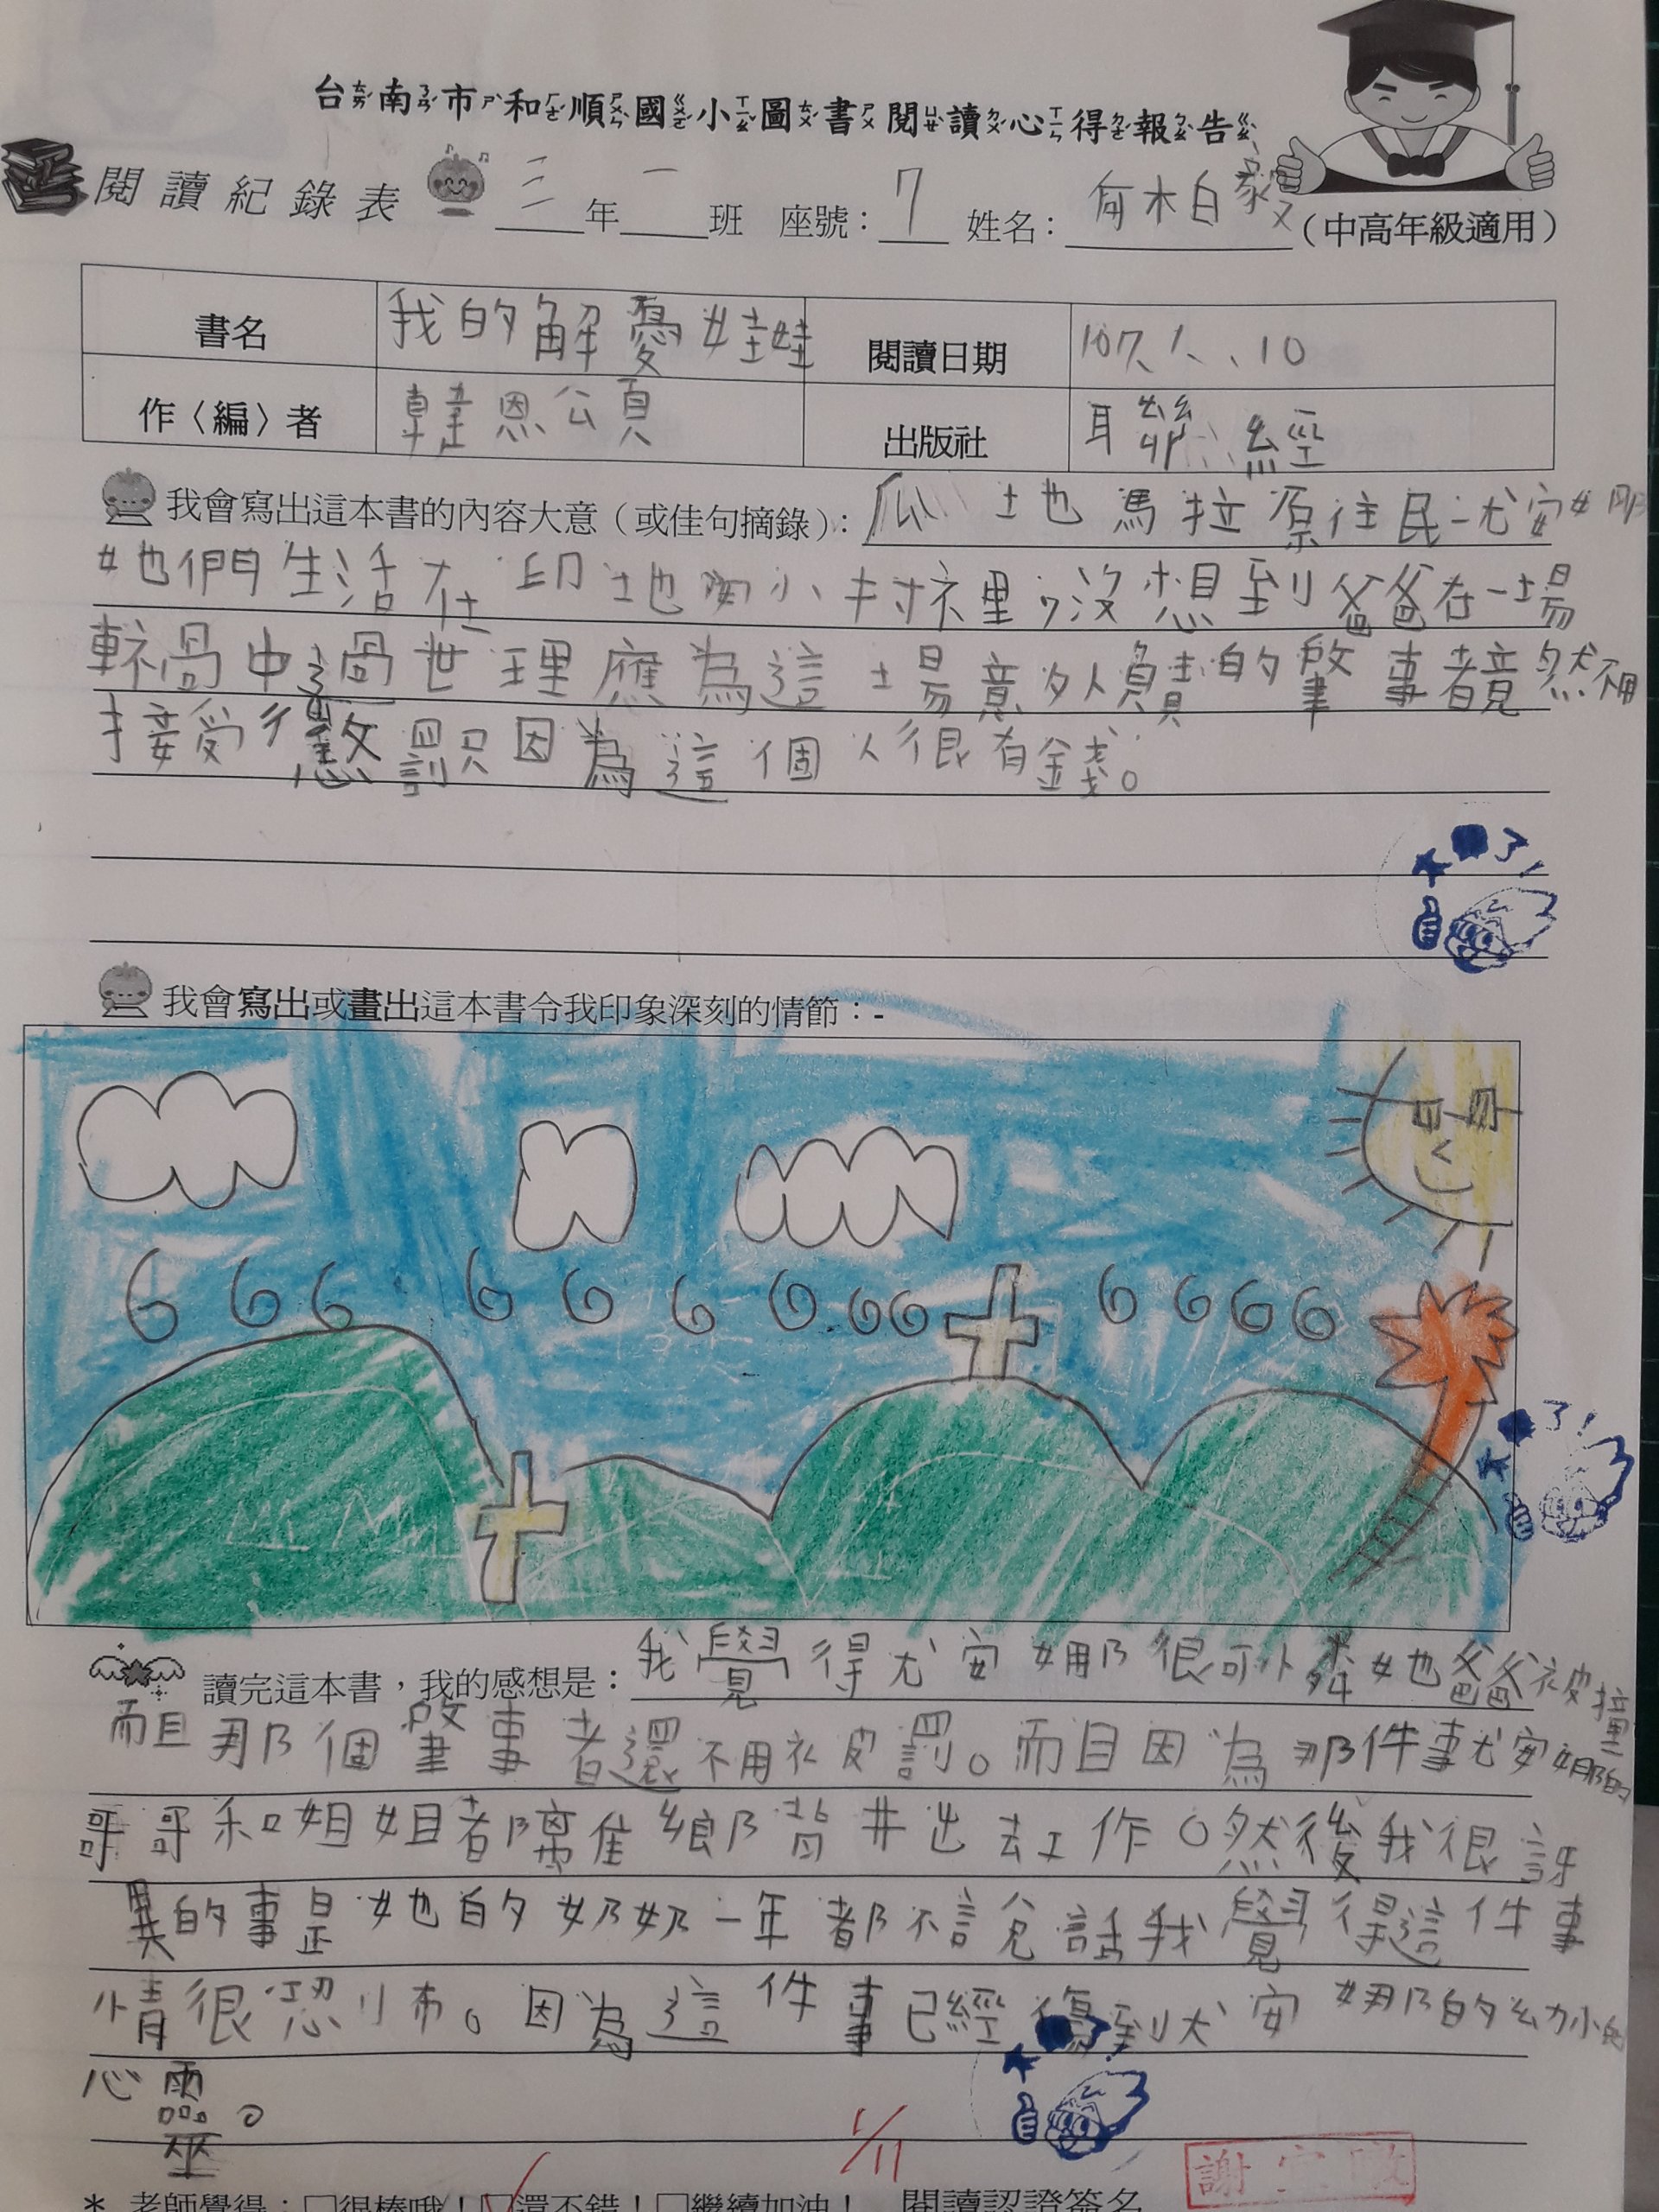 台南市和順國小圖書閱讀心得報告
閱讀紀錄表 三年一班 座號：7 姓名：何柏毅（中高年級適用）
書名 我的解憂娃娃 閱讀日期 107、1、10
作〈編〉者 韓恩公頁 出版社 聯經
我會寫出這本書的內容大意（或佳句摘錄）：瓜地馬拉原住民尤安娜
她們生活在 小村裡，沒想到爸爸在一場
車禍中過世理應為這場意外負責的肇事者竟然不用
接受懲罰只因為這個人很有錢。
我會寫出或畫出這本書令我印象深刻的情節：-
讀完這本書，我的感想是：我覺得尤安娜很可憐她爸爸被撞
而且那個肇事者還不用被罰。而且因為那件事尤安娜的
哥哥和姐姐都離鄉背井出去工作。然後我很訝
異的事是她的奶奶一年都不說話我覺得這件事
情很恐怖。因為這件事已經傷到尤安娜的幼小的
心靈。
1/11
謝
＊ 老師覺得：□很棒哦！□還不錯！□繼續加油！ 閱讀認證簽名